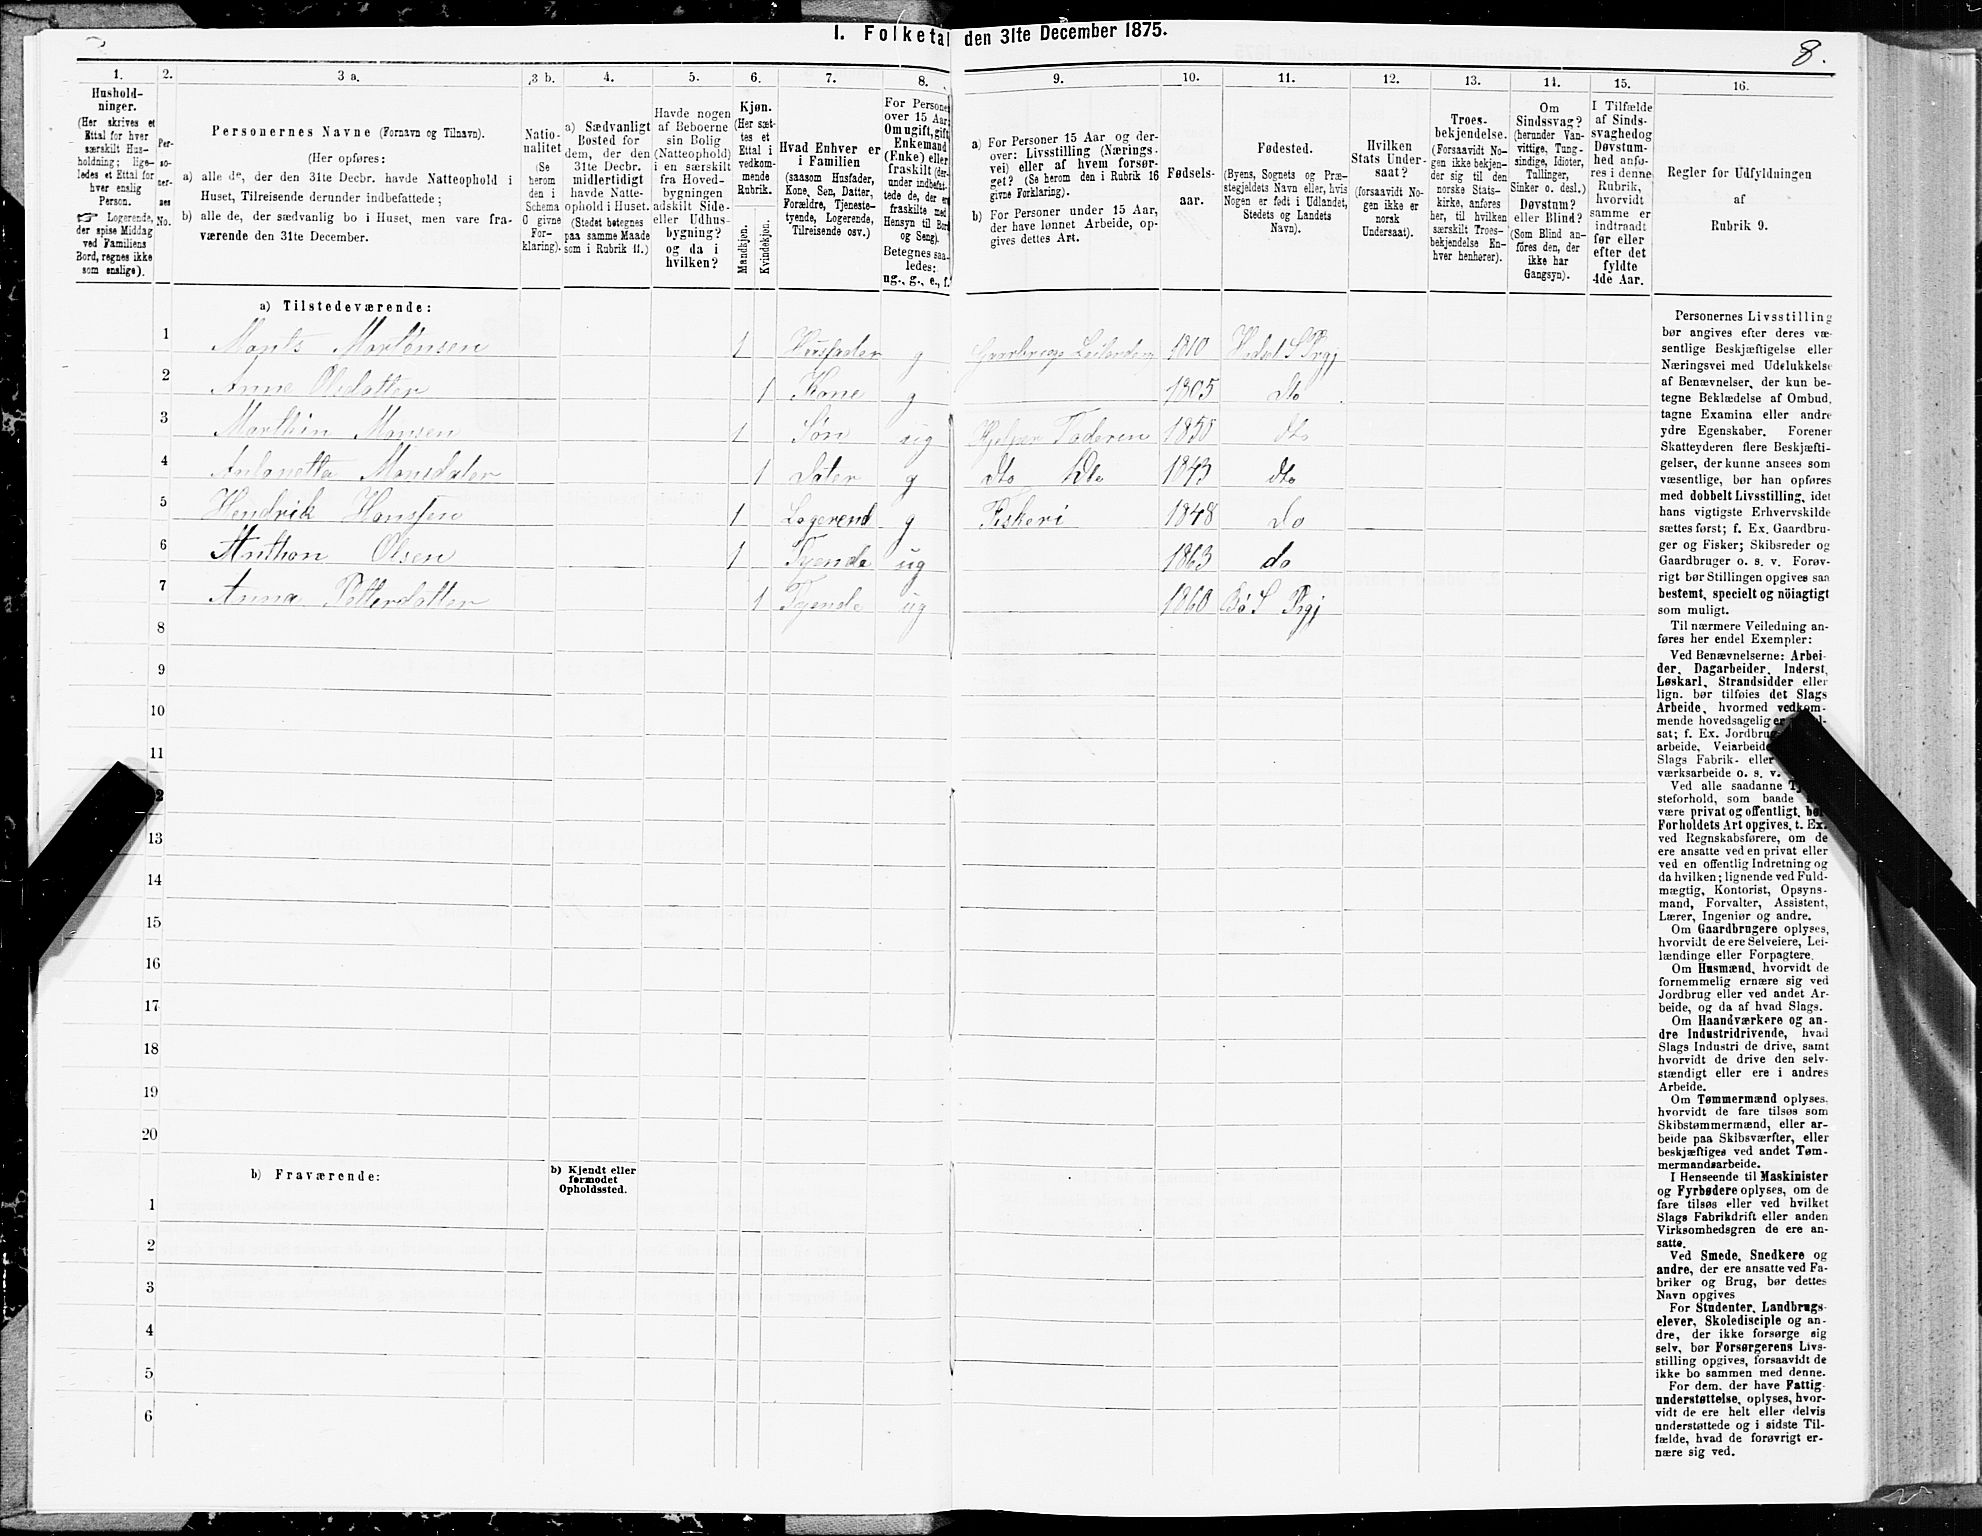 I. Folketal den 31te December 1875.
8.
1.
Hushold-
ninger.
(Her skrives et
Ettal for hver
særskilt Hus-
holdning; lige-
ledes et Ettal for
hver enslig
Person.
☞ Logerende,
der spise Middag
ved Familiens
Bord, regnes ikke
som enslige).
2.
Per-
so-
ner-
nes
No.
3 a.
Personernes Navne (Fornavn og Tilnavn).
(Her opføres:
a) alle de, der den 31te Decbr. havde Natteophold i
Huset, Tilreisende derunder indbefattede;
b) alle de, der sædvanlig bo i Huset, men vare fra-
værende den 31te December.
3 b.
Natio-
nalitet
(Se
herom
den i
Schema
C givne
For-
klaring).
4.
a) Sædvanligt
Bosted for
dem, der den
31te Decbr.
midlertidigt
havde Natte-
ophold i Huset.
(Stedet betegnes
paa samme Maade
som i Rubrik 11.)
5.
Havde nogen
af Beboerne
sin Bolig
(Natteophold)
i en særskilt
fra Hoved-
bygningen
adskilt Side-
eller Udhus-
bygning?
og da i
hvilken?
6.
Kjøn.
(Her sæt-
tes et
Ettal i
vedkom-
mende
Rubrik.
Mandkjøn.
Kvindekjøn.
7.
Hvad Enhver er
i Familien
(saasom Husfader,
Kone, Søn, Datter,
Forældre, Tjeneste-
tyende, Logerende,
Tilreisende osv.)
8.
For Personer
over 15 Aar:
Om ugift, gift,
Enkemand
(Enke) eller
fraskilt (der-
under indbefat-
tede de, der ere
fraskilte med
Hensyn til Bord
og Seng).
Betegnes saa-
ledes:
ug., g., e., f.
9.
a) For Personer 15 Aar og der-
over: Livsstilling (Nærings-
vei) eller af hvem forsør-
get? (Se herom den i Rubrik 16
givne Forklaring).
b) For Personer under 15 Aar,
der have lønnet Arbeide, op-
gives dettes Art.
10.
Fødsels-
aar.
11.
Fødested.
(Byens, Sognets og Præ-
stegjeldets Navn eller, hvis
Nogen er født i Udlandet,
Stedets og Landets
Navn).
12.
Hvilken
Stats Under-
saat?
(forsaavidt No-
gen ikke er
norsk
Undersaat).
13.
Troes-
bekjendelse.
(Forsaavidt No-
gen ikke bekjen-
der sig til den
norske Stats-
kirke, anføres
her, til hvilken
særskilt Troes-
bekjendelse En-
hver henhører).
14.
Om
Sindssvag?
(herunder Van-
vittige, Tung-
sindige, Idioter,
Tullinger,
Sinker o. desl.)
Døvstum?
eller Blind?
(Som Blind an-
føres den, der
ikke har
Gangsyn).
15.
I Tilfælde
af Sinds-
svaghed og
Døvstum-
hed anfø-
res i denne
Rubrik,
hvorvidt
samme er
indtraadt
før eller
efter det
fyldte
4de Aar.
16.
Regler for Udfyldningen
af
Rubrik 9.
a) Tilstedeværende:
1 Monts Mortensen 1 Husfader g Gaarbruge Leilending 1810 Hadsel S Prgj
2 Anne Olsdatter 1 Kone g 1805 Do
3 Morthin Monsen 1 Søn ug Hjelper Faderen 1850 do
4 Antonetta Monsdater 1 Dater g dto Dto 1843 dto
5 Hendrik Hanssen 1 Logerend g Fiskeri 1848 Do
6 Anthon Olsen 1 Tyende ug 1863 do
7 Anna Petterdatter 1 Tyende ug 1860 Bø S Prgj
8
9
10
11
13
14
15
16
17
18
19
20
b) Fraværende:
b) Kjendt eller
formodet
Opholdssted.
1
2
3
4
5
6
Personernes Livsstilling
bør angives efter deres væ-
sentlige Beskjæftigelse eller
Næringsvei med Udelukkelse
af Benævnelser, der kun be-
tegne Beklædelse af Ombud,
tagne Examina eller andre
ydre Egenskaber. Forener
Skatteyderen flere Beskjæfti-
gelser, der kunne ansees som
væsentlige, bør han opføres
med dobbelt Livsstilling, idet
hans vigtigste Erhvervskilde
sættes først; f. Ex. Gaardbru-
ger og Fisker; Skibsreder og
Gaardbruger o. s. v. Forøv-
rigt bør Stillingen opgives saa
bestemt, specielt og nöiagtigt
som muligt.
Til nærmere Veiledning an-
føres her endel Exempler:
Ved Benævnelserne: Arbei-
der, Dagarbeider, Inderst,
Løskarl, Strandsidder eller
lign. bør tilføies det Slags
Arbeide, hvormed vedkom-
mende hovedsagelig er
sat; f. Ex. Jordbrug
arbeide, Veiarbeide
Slags Fabrik- eller
værksarbeide o. s. v.
Ved alle saadanne
steforhold, som baade
være privat og offentligt, bør
Forholdets Art opgives, t. Ex.
ved Regnskabsførere, om de
ere ansatte ved en privat eller
ved en offentlig Indretning og
da hvilken; lignende ved Fuld-
mægtig, Kontorist, Opsyns-
mand, Forvalter, Assistent,
Lærer, Ingeniør og andre.
Om Gaardbrugere oplyses,
hvorvidt de ere Selveiere, Lei-
lændinge eller Forpagtere.
Om Husmænd, hvorvidt de
fornemmelig ernære sig ved
Jordbrug eller ved andet Ar-
beide, og da af hvad Slags.
Om Haandværkere og an-
dre Industridrivende, hvad
Slags Industri de drive, samt
hvorvidt de drive den selv-
stændigt eller ere i andres
Arbeide.
Om Tømmermænd oplyses,
hvorvidt de fare tilsøs som
Skibstømmermænd, eller ar-
beide paa Skibsværfter, eller
beskjæftiges ved andet Tøm-
mermandsarbeide.
I Henseende til Maskinister
og Fyrbødere oplyses, om de
fare tilsøs eller ved hvilket
Slags Fabrikdrift eller anden
Virksomhedsgren de ere an-
satte.
Ved Smede, Snedkere og
andre, der ere ansatte ved Fa-
briker og Brug, bør dettes
Navn opgives
For Studenter, Landbrugs-
elever, Skoledisciple og an-
dre, der ikke forsørge sig
selv, bør Forsørgerens Livs-
stilling opgives, forsaavidt de
ikke bo sammen med denne.
For dem, der have Fattig-
understøttelse, oplyses, hvor-
vidt de ere helt eller delvis
understøttede og i sidste Til-
fælde, hvad de forøvrigt er-
nære sig ved.